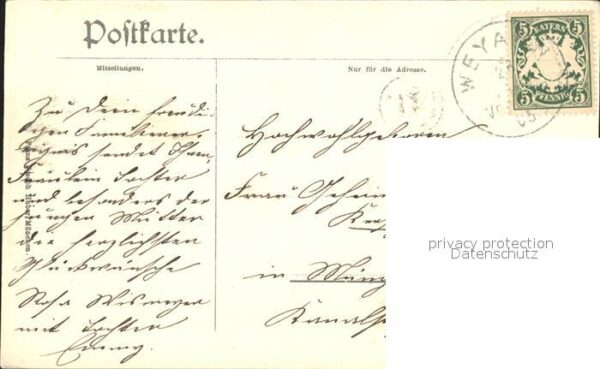 Postkarte.
Mitteilungen.
Nur für die Adresse.
WEYA
BAYERN
5 5
5 PFENNIG 5
Zu dem freudi-
gen Familiener-
eignis sendet Ihnen,
Fräulein Tochter
und besonders der
jungen Mutter
die herzlichsten
Glückwünsche
Rosa Wismeyer
mit Tochter
Emmy.
Hochwohlgeboren
Frau Geheim
in Mün
Kanals
privacy protection
Datenschutz